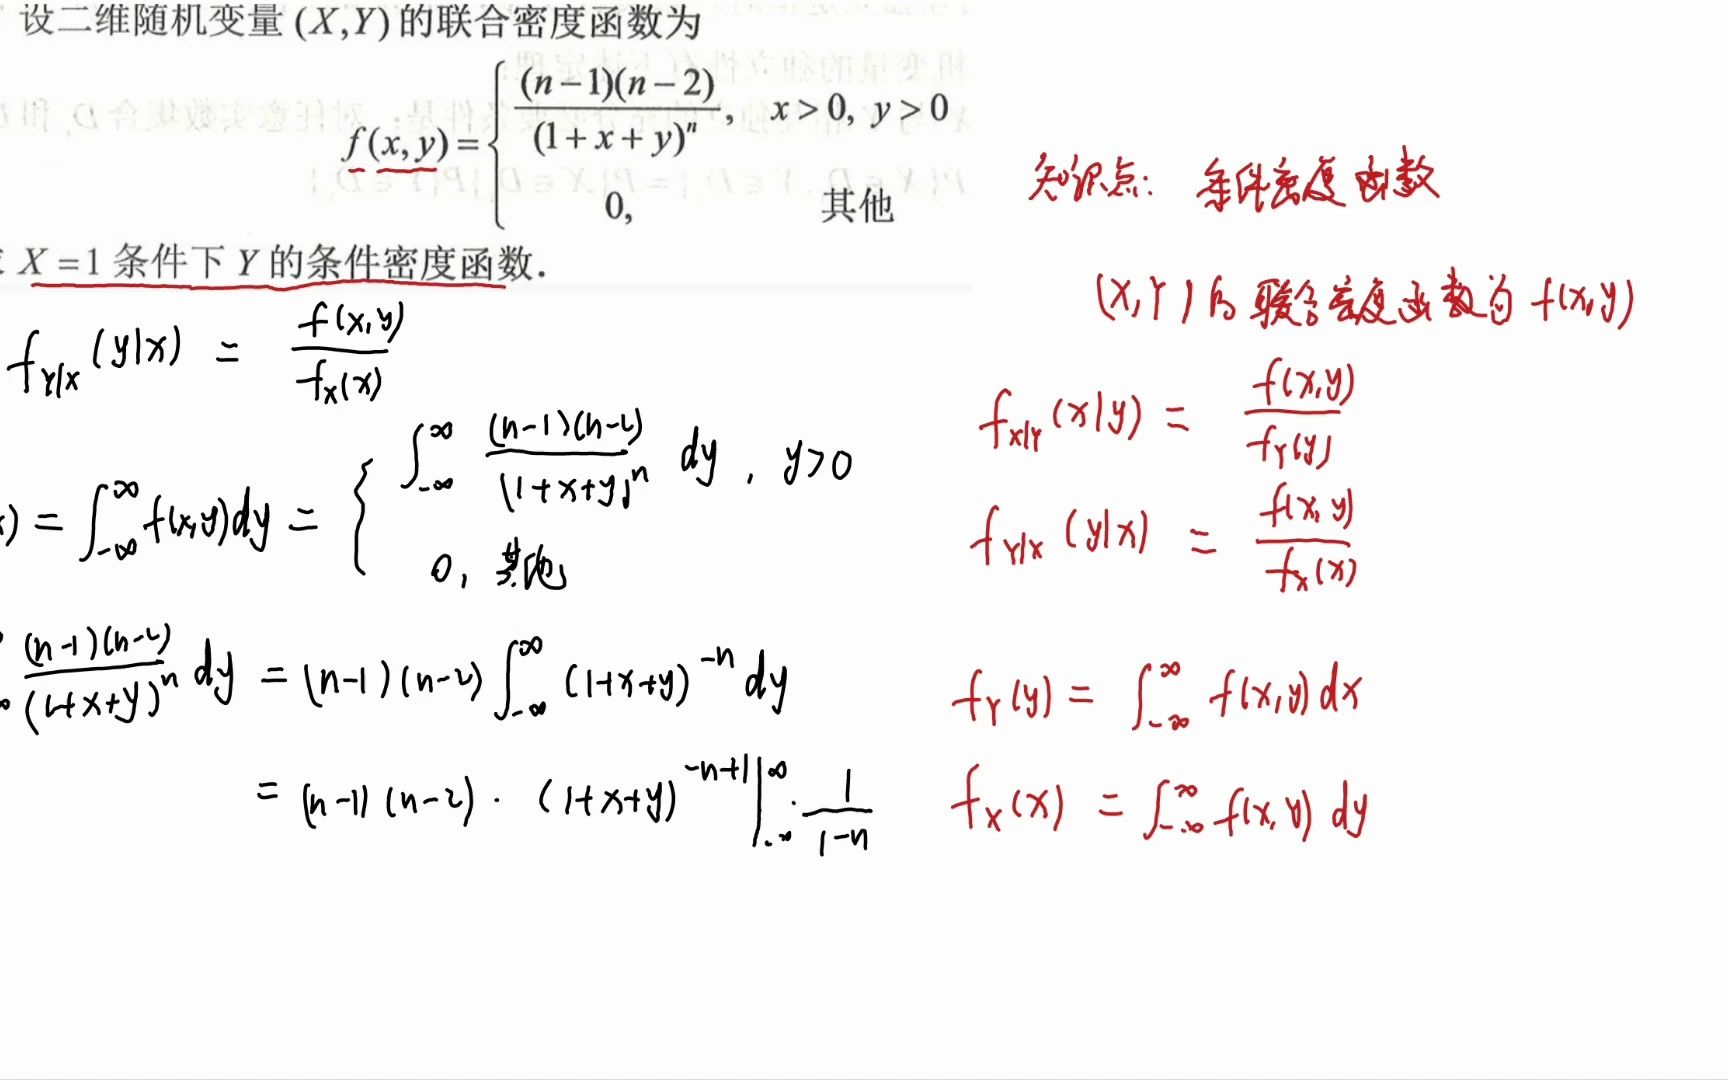 设二维随机变量 (X,Y) 的联合密度函数为
f(x,y) = { (n-1)(n-2) / (1+x+y)^n, x>0, y>0
0, 其他
X=1 条件下 Y 的条件密度函数.
f_{Y|X}(y|x) = f(x,y) / f_X(x)
) = ∫_{-∞}^{∞} f(x,y)dy = { ∫_{-∞}^{∞} (n-1)(n-2) / (1+x+y)^n dy, y>0
0, 其他
(n-1)(n-2) / (1+x+y)^n dy = (n-1)(n-2) ∫_{-∞}^{∞} (1+x+y)^{-n} dy
= (n-1)(n-2) · (1+x+y)^{-n+1} |_{-∞}^{∞} · 1 / 1-n
知识点: 条件密度函数
(X,Y)的联合密度函数为 f(x,y)
f_{X|Y}(x|y) = f(x,y) / f_Y(y)
f_{Y|X}(y|x) = f(x,y) / f_X(x)
f_Y(y) = ∫_{-∞}^{∞} f(x,y) dx
f_X(x) = ∫_{-∞}^{∞} f(x,y) dy